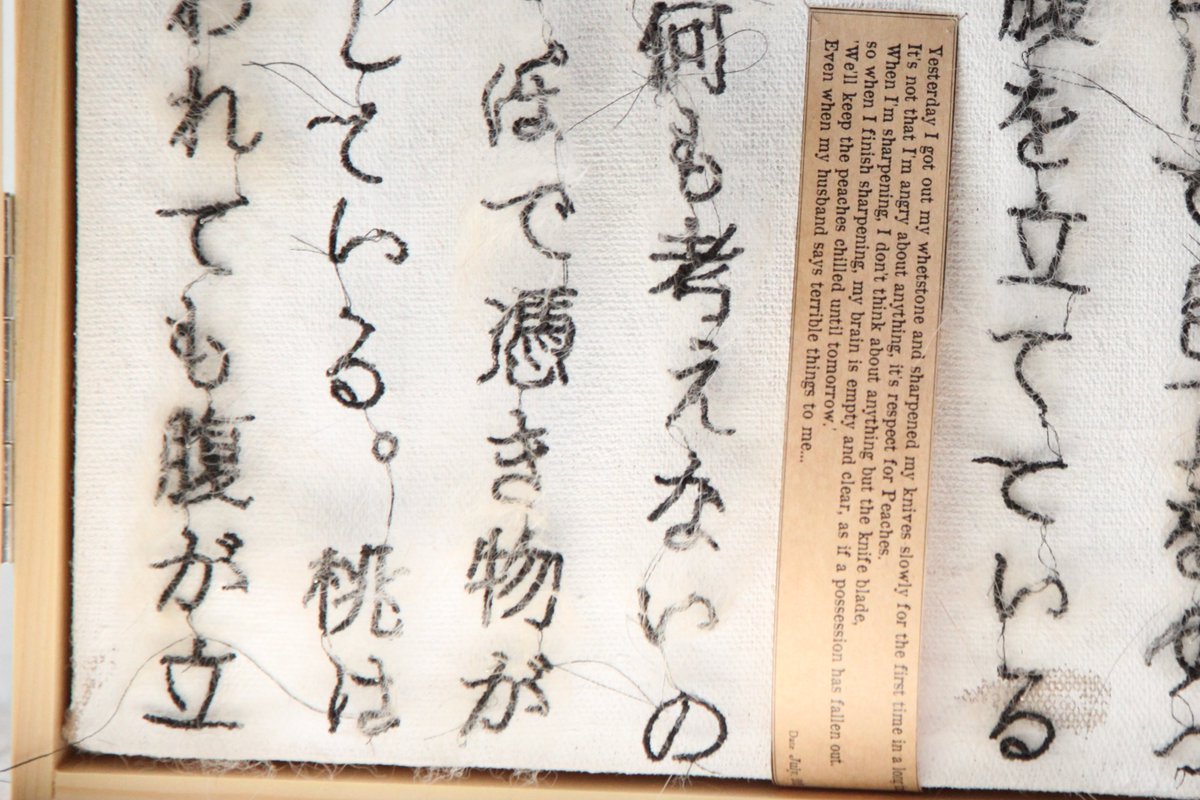 を立てている
Yesterday I got out my whetstone and sharpened my knives slowly for the first time in a long
It's not that I'm angry about anything, it's respect for Peaches.
When I'm sharpening, I don't think about anything but the knife blade,
so when I finish sharpening, my brain is empty and clear, as if a possession has fallen out.
'We'll keep the peaches chilled until tomorrow.'
Even when my husband says terrible things to me...
Date July
何も考えないの
で憑き物が
している。桃は
われても腹が立